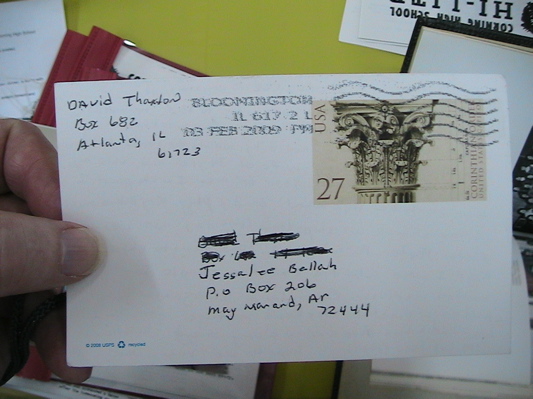 CORNING HIGH SCHOOL
HI-LITE
DAVID Thaxton
Box 682
Atlanta, IL
61723
BLOOMINGTON
IL 617 2 L
03 FEB 2009 PM
USA
27
CORINTHIAN
Jessalee Ballah
P.O Box 206
may Nard, Ar
72444
© 2008 USPS recycled